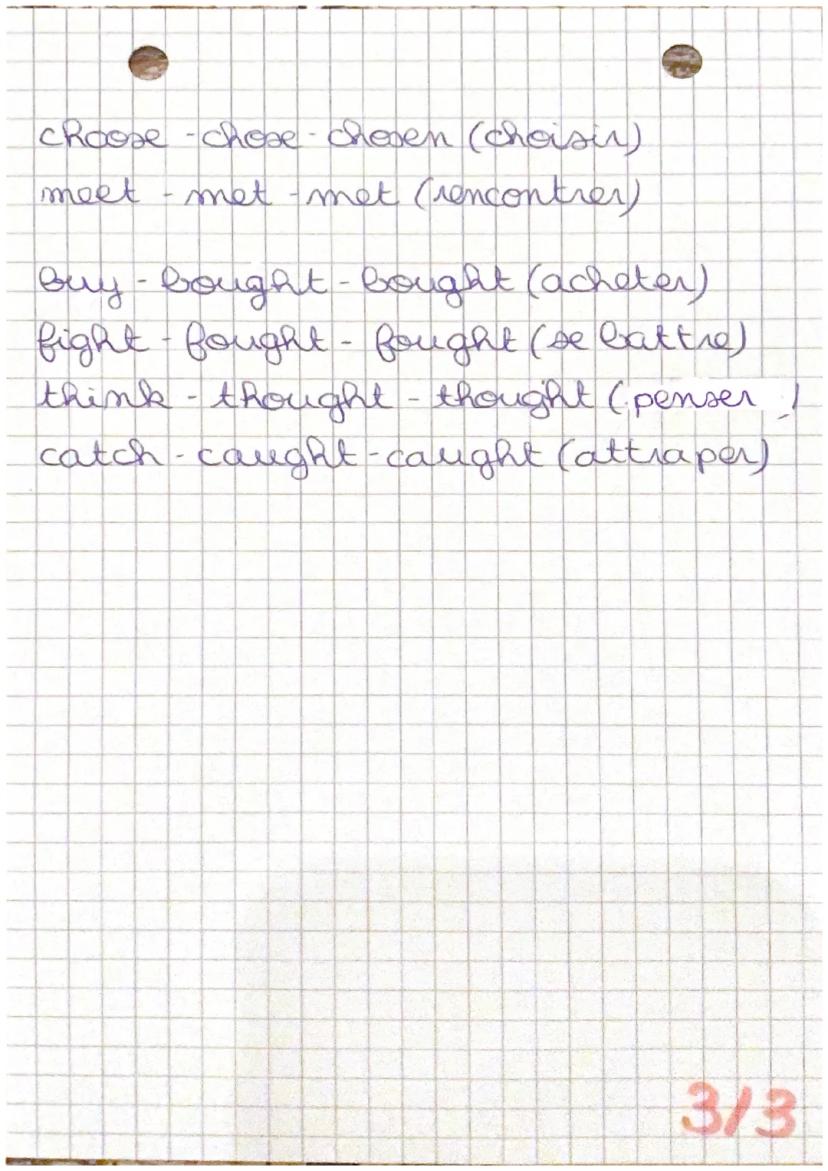 choose - chose - chosen (choisir)
meet - met - met (rencontrer)
buy - bought - bought (acheter)
fight - fought - fought (se battre)
think - thought - thought (penser )
catch - caught - caught (attraper)
3/3